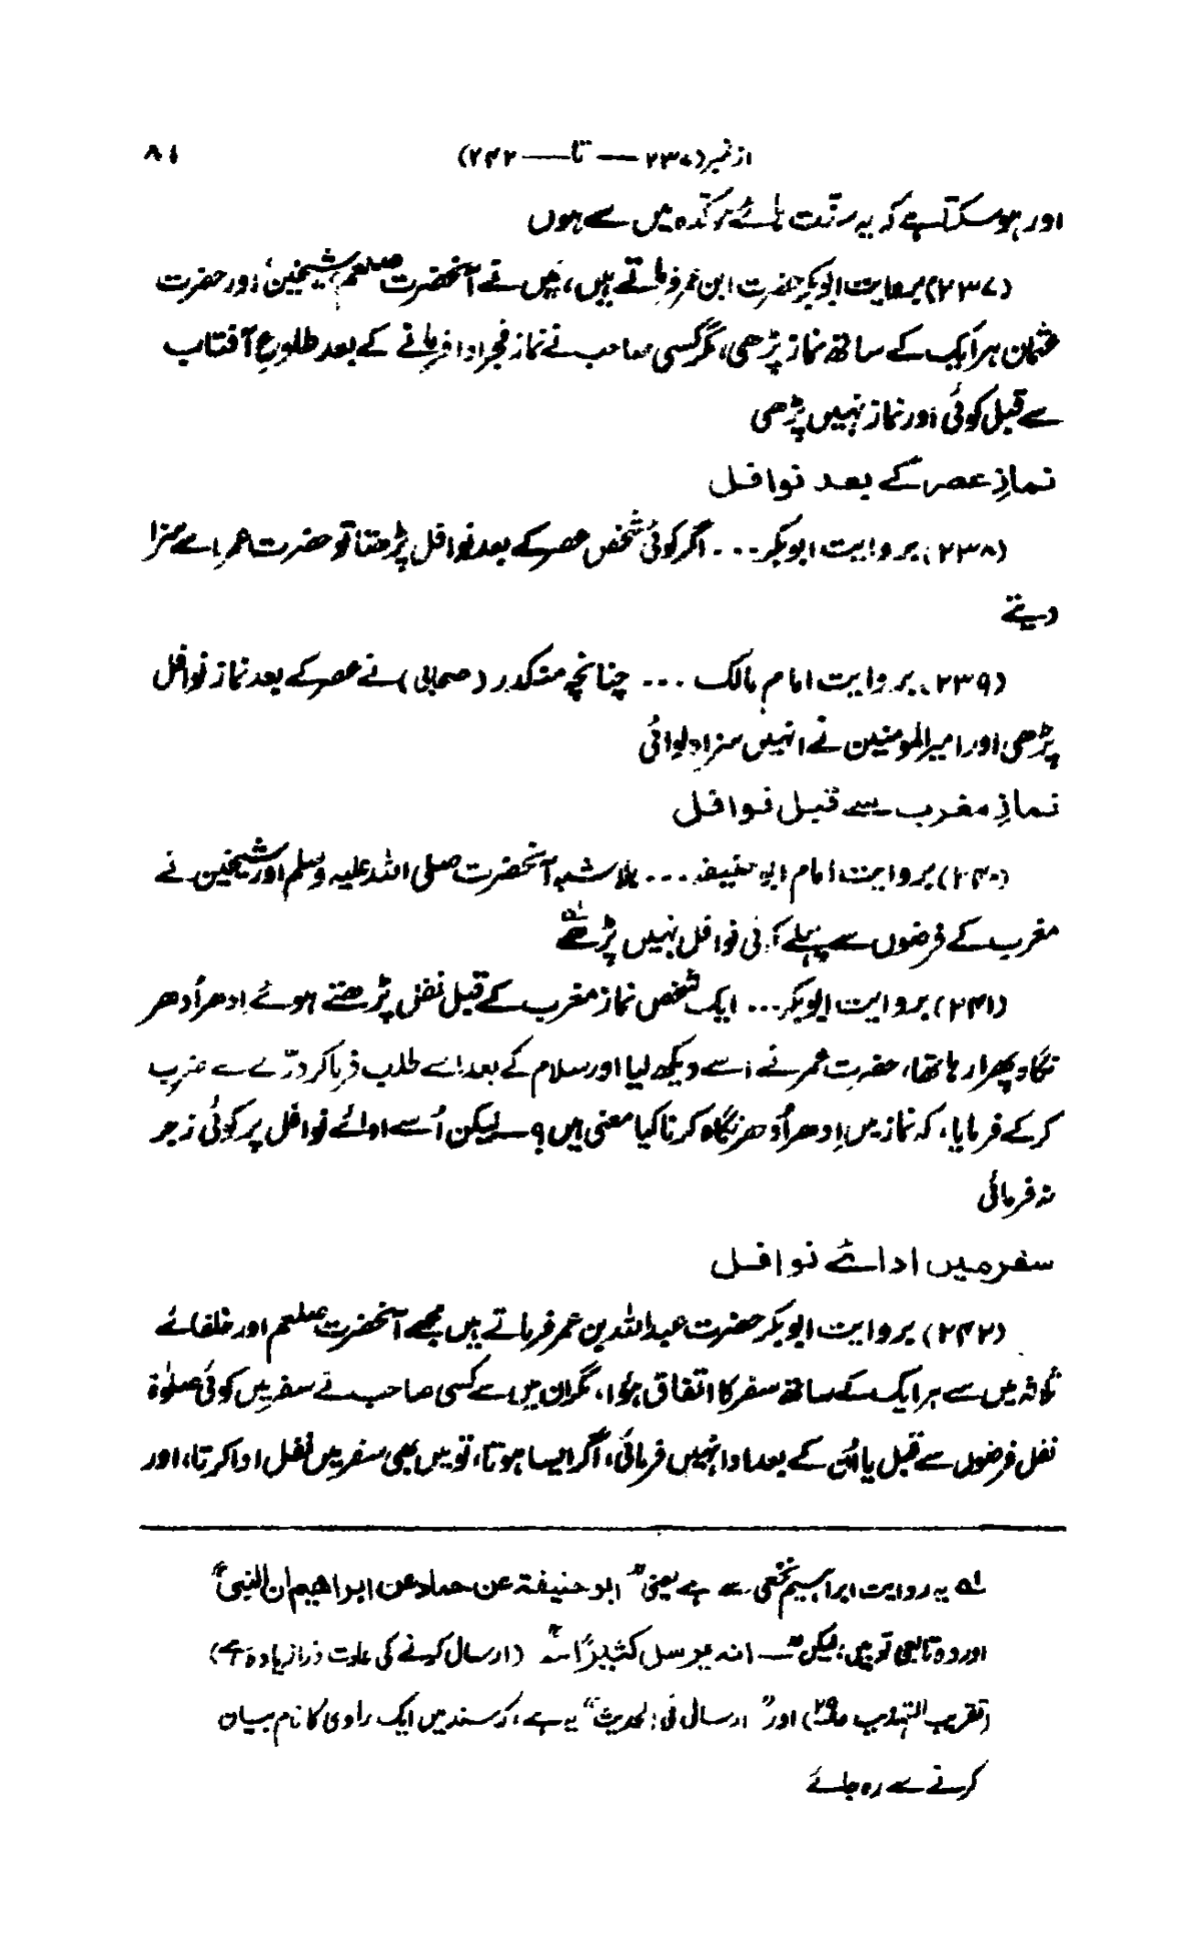 از نمبر (۲۳۷ — تا — ۲۴۲) ۸۱
اور ہو سکتا ہے کہ یہ سنّت ہائے مؤکّدہ میں سے ہوں
(۲۳۷) بروایت ابوبکر حضرت ابن عمر فرماتے ہیں، میں نے آنحضرت صلعم، شیخینؓ اور حضرت
عثمان ہر ایک کے ساتھ نماز پڑھی، مگر کسی صاحب نے نماز فجر ادا فرمانے کے بعد طلوعِ آفتاب
سے قبل کوئی اور نماز نہیں پڑھی
نمازِ عصر کے بعد نوافل
(۲۳۸) بروایت ابوبکر ... اگر کوئی شخص عصر کے بعد نوافل پڑھتا تو حضرت عمر اسے سزا
دیتے
(۲۳۹) بروایت امام مالک ... چنانچہ منکدر (صحابی) نے عصر کے بعد نماز نوافل
پڑھی اور امیر المومنین نے انہیں سزا دلوائی
نمازِ مغرب سے قبل نوافل
(۲۴۰) بروایت امام ابو حنیفہ ... بلا شبہ آنحضرت صلی اللہ علیہ وسلم اور شیخین نے
مغرب کے فرضوں سے پہلے کوئی نوافل نہیں پڑھے ؎۱
(۲۴۱) بروایت ابوبکر ... ایک شخص نماز مغرب کے قبل نفل پڑھتے ہوئے اِدھر اُدھر
نگاہ پھرا رہا تھا، حضرت عمر نے اسے دیکھ لیا اور سلام کے بعد اسے طلب فرما کر درّے سے ضرب
کر کے فرمایا، کہ نماز میں اِدھر اُدھر نگاہ کرنا کیا معنی ہیں؟ — لیکن اُسے ادائے نوافل پر کوئی زجر
نہ فرمائی
سفر میں ادائے نوافل
(۲۴۲) بروایت ابوبکر حضرت عبداللہ بن عمر فرماتے ہیں مجھے آنحضرت صلعم اور خلفائے
ثلاثہ میں سے ہر ایک کے ساتھ سفر کا اتفاق ہوا، مگر ان میں سے کسی صاحب نے سفر میں کوئی صلوٰۃ
نفل فرضوں سے قبل یا اُن کے بعد ادا نہیں فرمائی، اگر ایسا ہوتا، تو میں بھی سفر میں نفل ادا کرتا، اور
؎۱ یہ روایت ابراہیم نخعی سے ہے یعنی "ابو حنیفة عن حماد عن ابراهیم ان النبی"
اور وہ تابعی تو ہیں، لیکن "— انه یرسل کثیرًا" (ارسال کرنے کی عادت ذرا زیادہ ہے)
(تقریب التہذیب ص۲۹) اور "ارسال فی الحدیث" یہ ہے، کہ سند میں ایک راوی کا نام بیان
کرنے سے رہ جائے